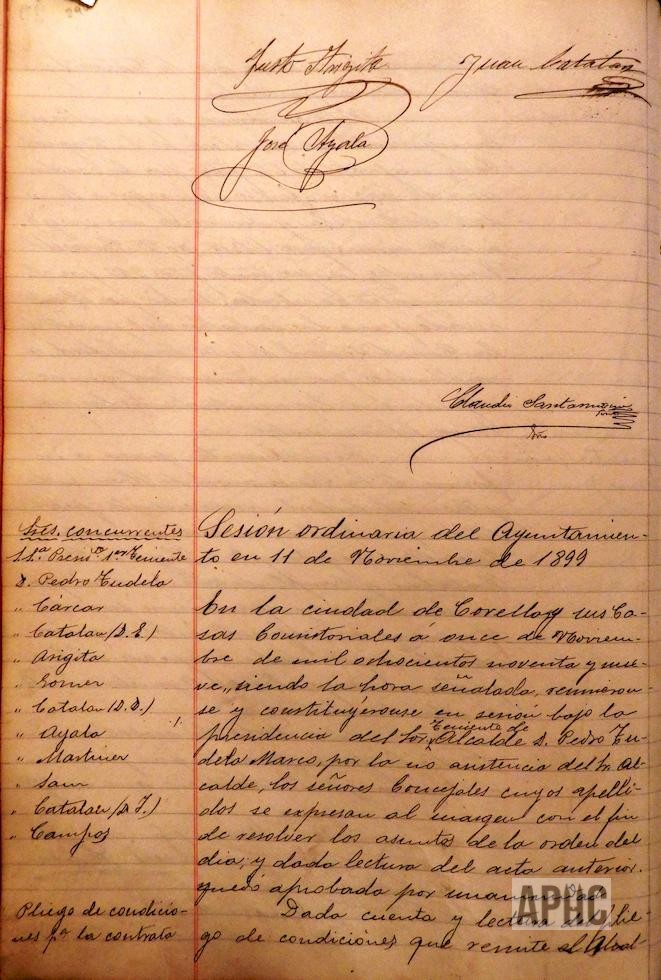 Justo Arigita
Juan Catalan
José Ayala
Claudio Santamaria
Srio
Sres. concurrentes
S.Sª Presdº 1er Teniente
D. Pedro Tudela
" Cárcar
" Catalan (D. E.)
" Arigita
" Gomez
" Catalan (D. D.)
" Ayala
" Martinez
" Sanz
" Catalan (D. J.)
" Campos
Pliego de condicio-
nes pª la contrata
Sesión ordinaria del Ayuntamien-
to en 11 de Noviembre de 1899
En la ciudad de Corella y sus Ca-
sas Consistoriales á once de Noviem-
bre de mil ochocientos noventa y nue-
ve, siendo la hora señalada, reunieron-
se y constituyeronse en sesión bajo la
presidencia del Sor. Teniente de Alcalde D. Pedro Tu-
dela Marco, por la no asistencia del Sr. Al-
calde, los señores Concejales cuyos apelli-
dos se expresan al margen con el fin
de resolver los asuntos de la orden del
dia; y dada lectura del acta anterior.
quedó aprobada por unanimidad
Dada cuenta y lectura del plie-
go de condiciones que remite el
APHC